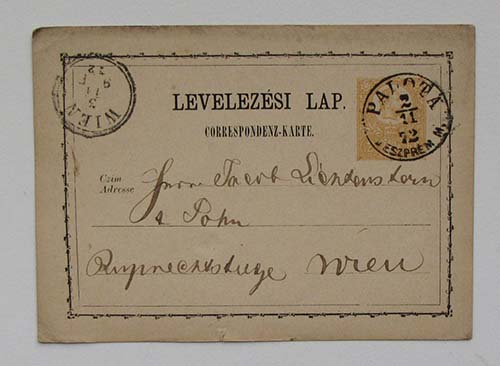 LEVELEZÉSI LAP.
CORRESPONDENZ-KARTE.
PALOTA
2/11
72
VESZPRÉM M.
WIEN
3
11
72
Czim
Adresse
Herrn Jacob Lichtenstern
& Sohn
Ruprechtstiege Wien